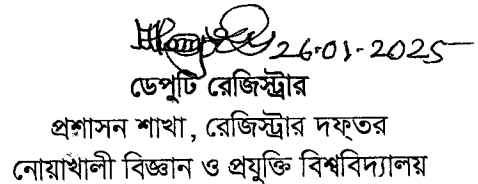 26-01-2025
ডেপুটি রেজিস্ট্রার
প্রশাসন শাখা, রেজিস্ট্রার দফ্তর
নোয়াখালী বিজ্ঞান ও প্রযুক্তি বিশ্ববিদ্যালয়